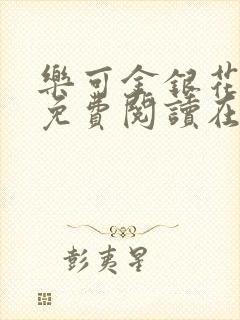 樂可金銀花
免費閱讀在
彭夷星